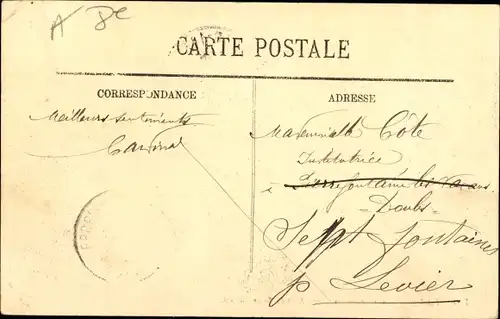 A
CARTE POSTALE
CORRESPONDANCE
Meilleurs sentiments
ADRESSE
Mademoiselle Côte
Institutrice
à Pierrefontaine les Varans
Doubs
Sept fontaines
p Levier